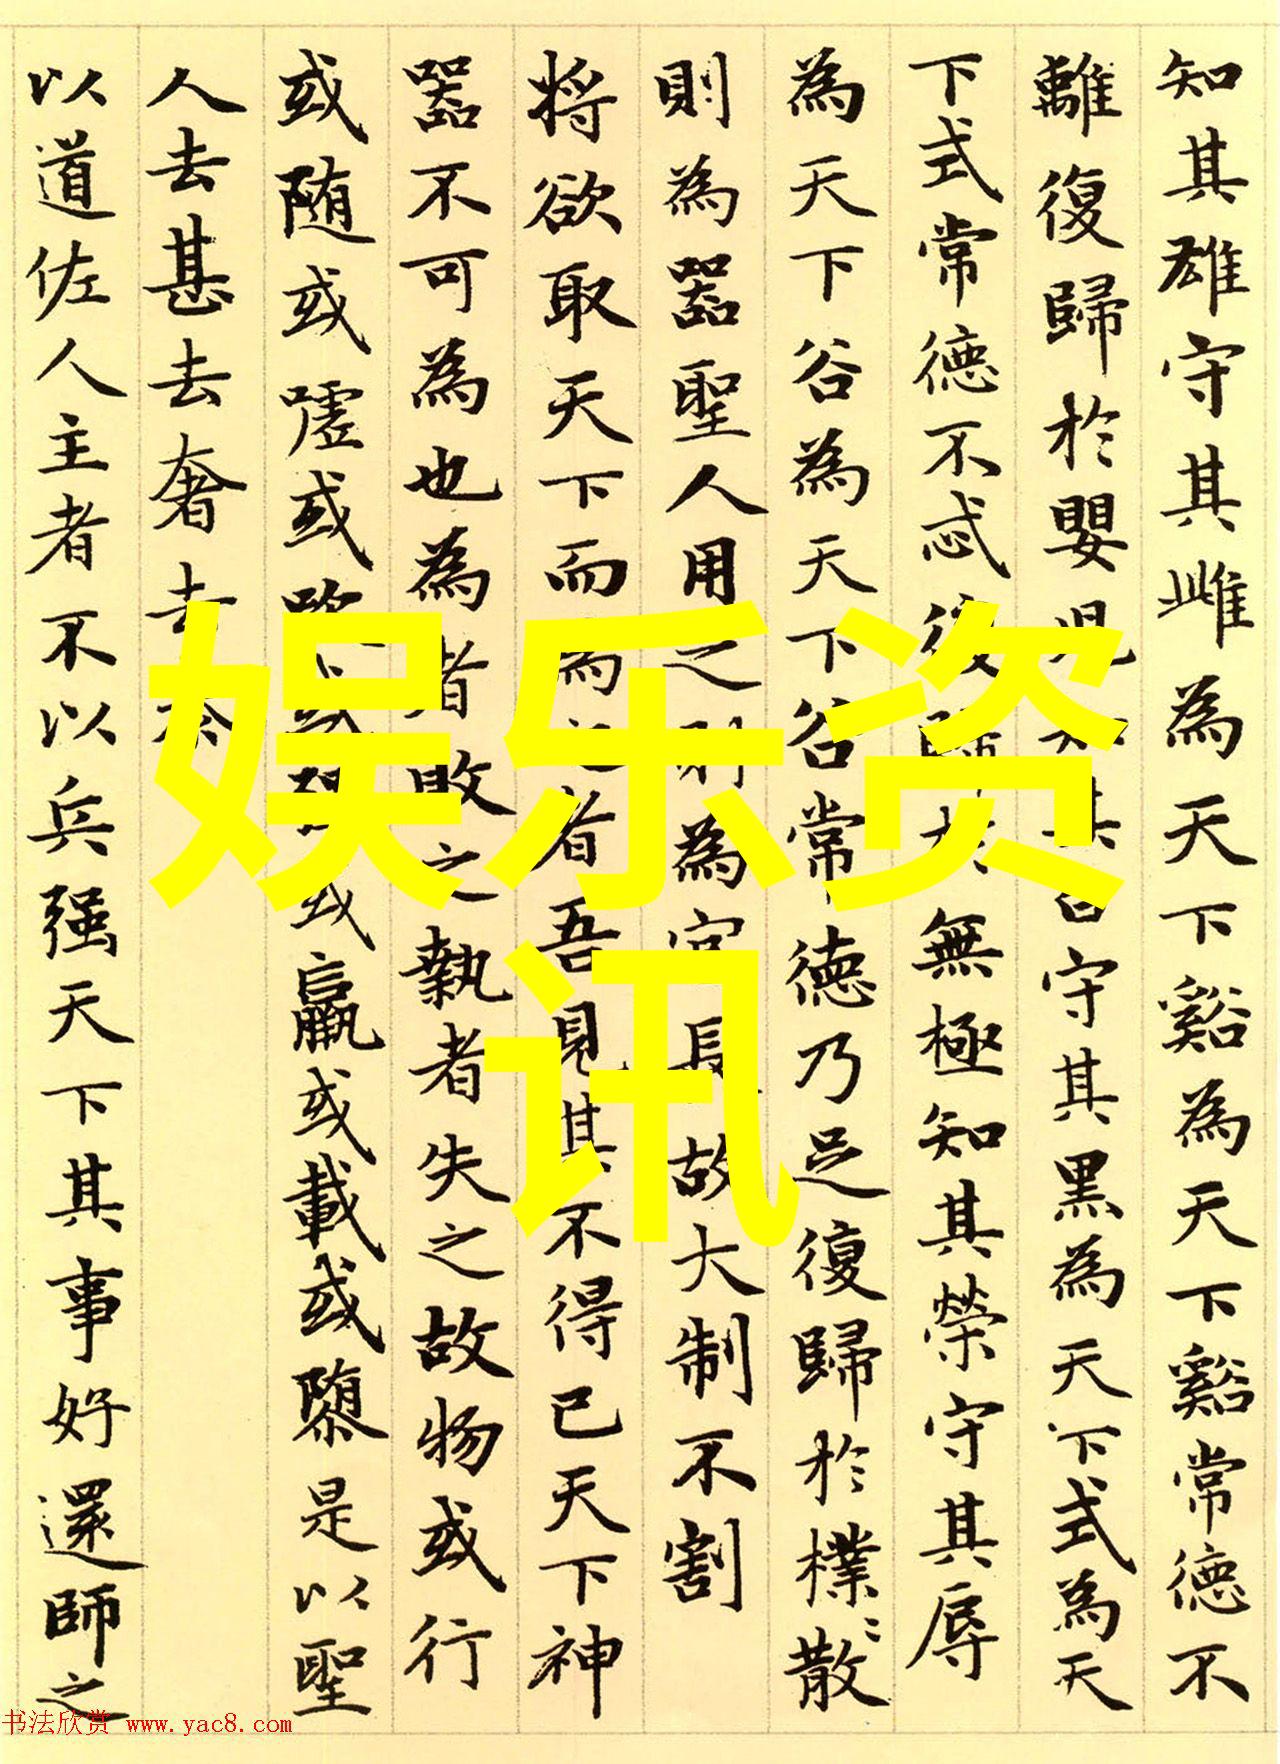 知其雄守其雌為天下谿為天下谿常德不
離復歸於嬰児知其白守其黑為天下式為天
下式常德不忒復歸於無極知其榮守其辱
為天下谷為天下谷常德乃足復歸於樸〻散
則為器聖人用之則為官長故大制不割
将欲取天下而為之者吾見其不得已天下神
器不可為也為者敗之執者失之故物或行
或随或噓或吹或强或羸或載或隳是以聖
人去甚去奢去泰
以道佐人主者不以兵强天下其事好還師之
娱乐资
讯
书法欣赏 www.yac8.com